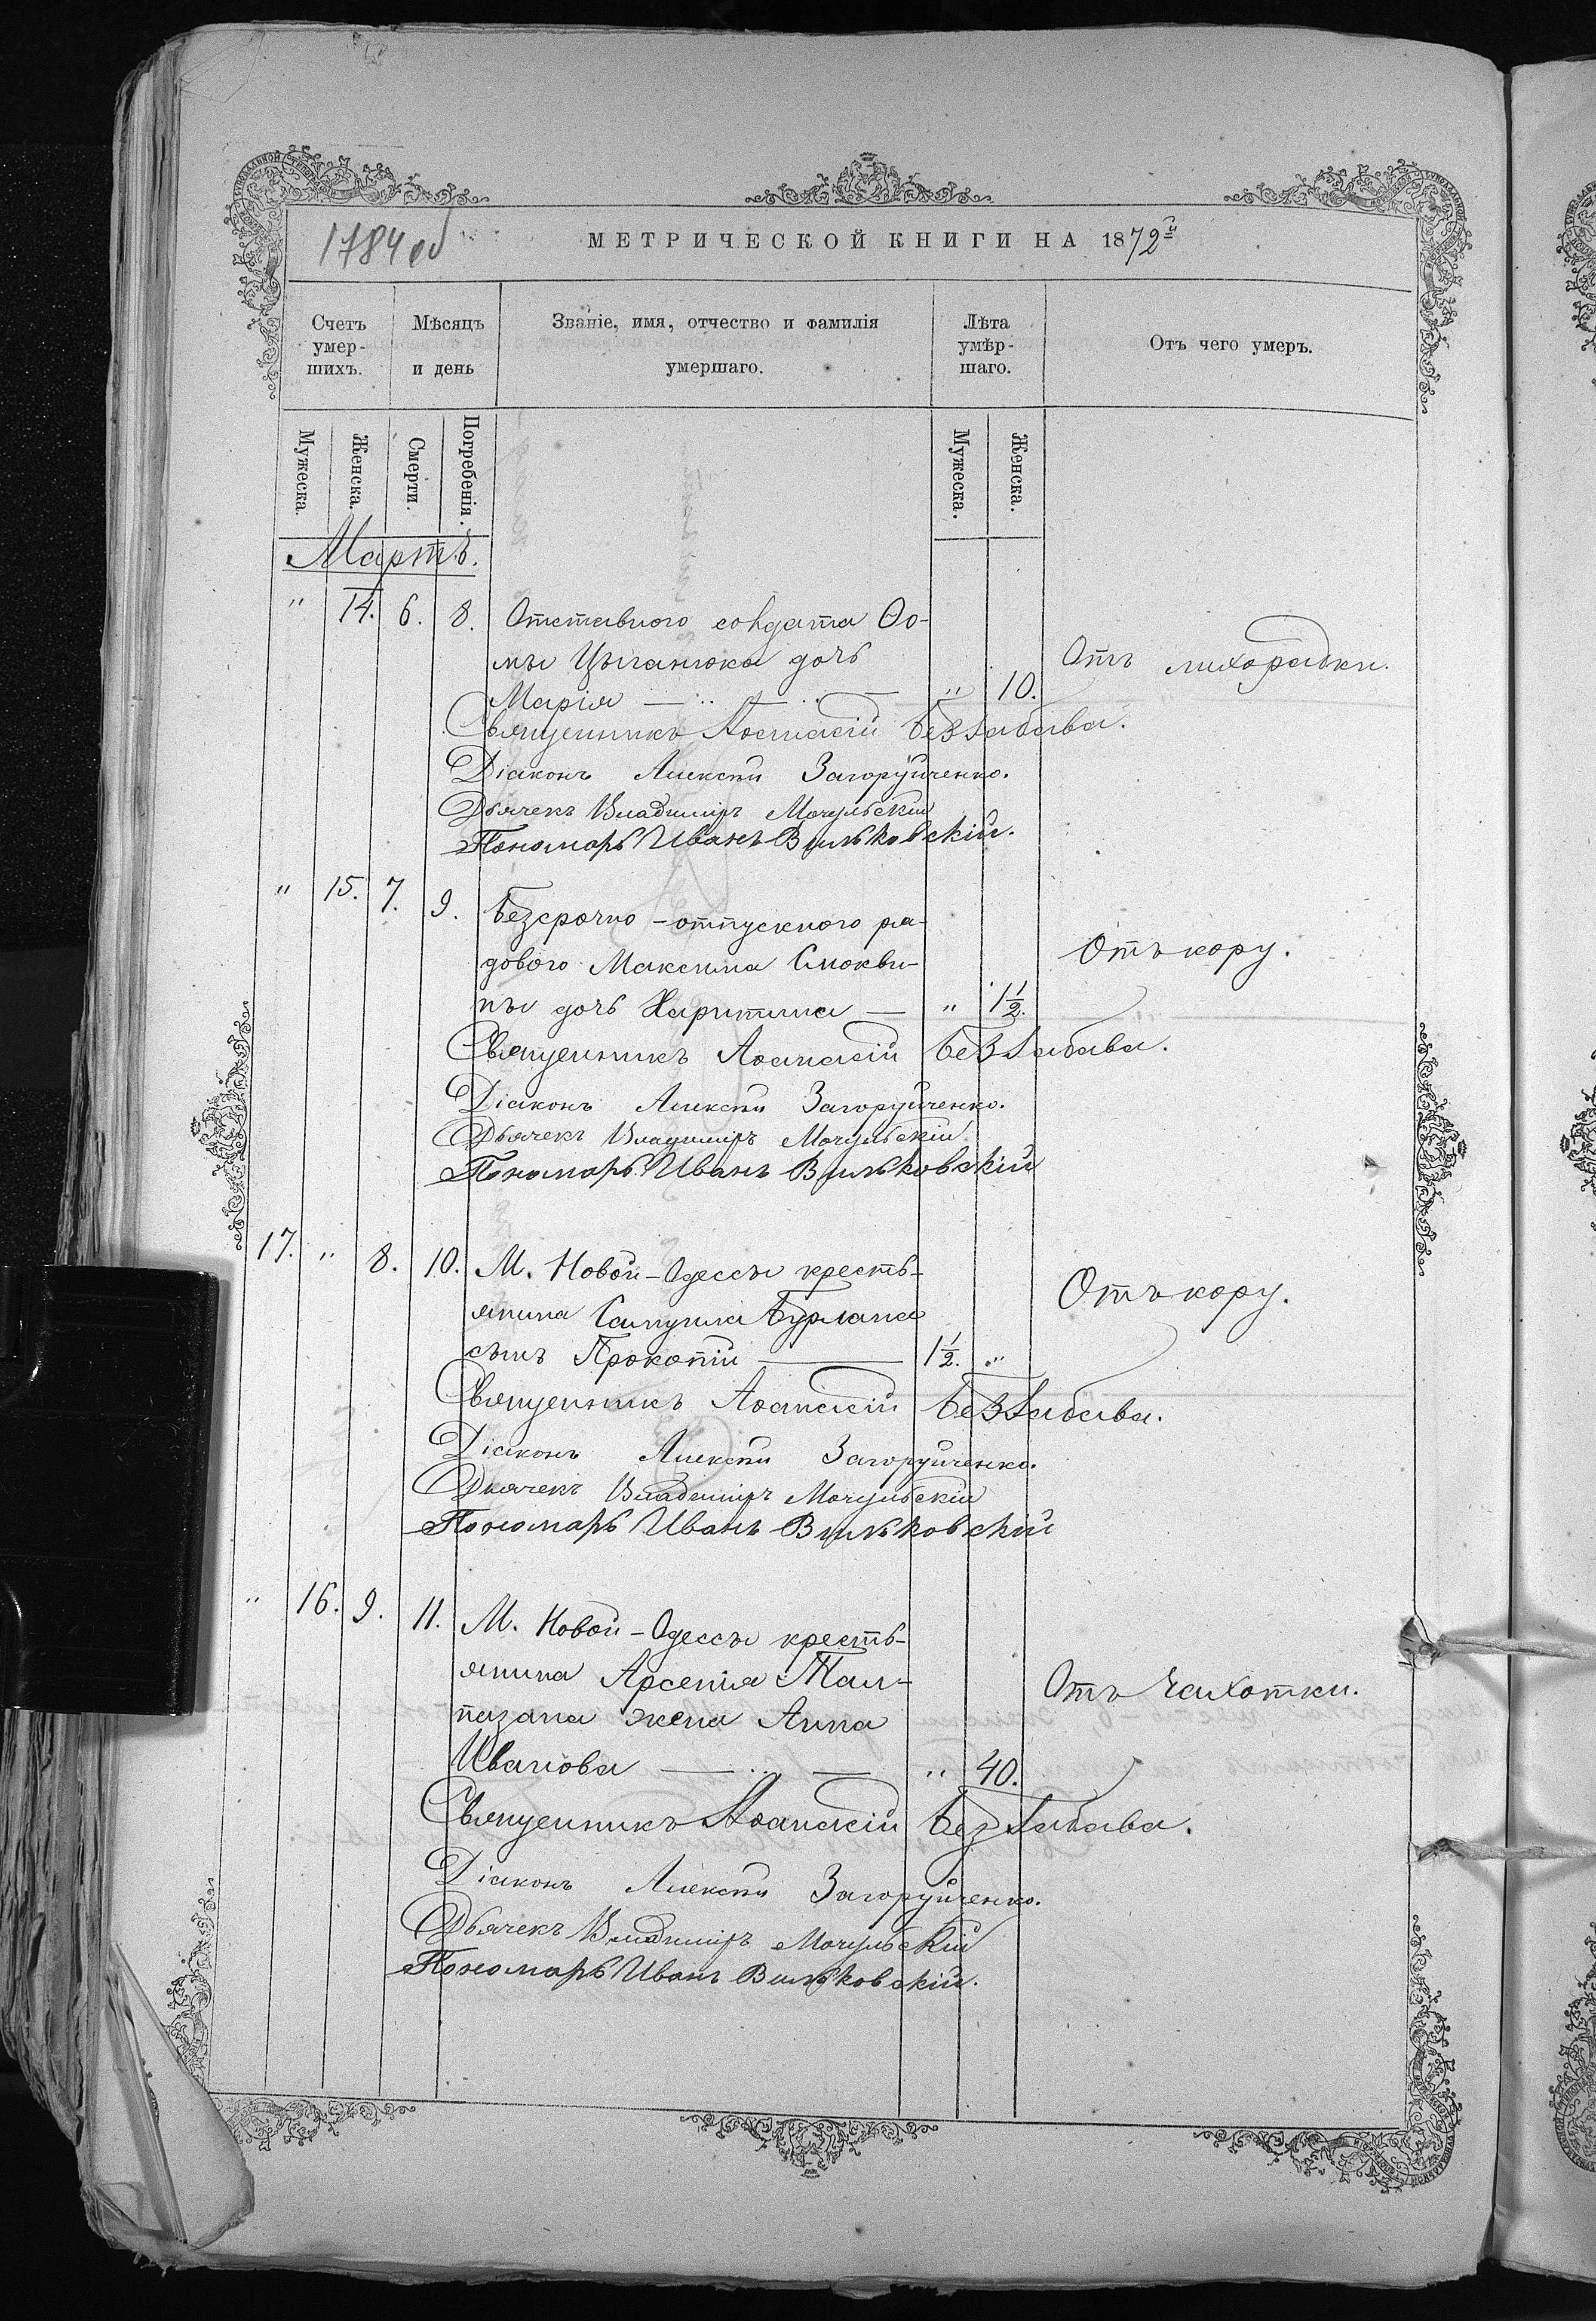 1784 об
МЕТРИЧЕСКОЙ КНИГИ НА 1872й
Счетъ умер-шихъ.
Мѣсяцъ и день
Званіе, имя, отчество и фамилія умершаго.
Лѣта умѣр-шаго.
Отъ чего умеръ.
Мужеска.
Женска.
Смерти.
Погребенія.
Мужеска.
Женска.
Мартъ.
" 14. 6. 8. Отставного солдата Ѳо-
мы Цыганюка дочь
Марія — " 10. Отъ лихорадки.
Священникъ Аѳанасій Беззабава.
Діаконъ Алексѣй Загоруйченко.
Дьячекъ Владиміръ Мочульскій
Пономарь Иванъ Вильковскій.
" 15. 7. 9. Безсрочно-отпускного ря-
дового Максима Смокви-
ны дочь Харитина — " 1½. Отъ кору.
Священникъ Аѳанасій Беззабава.
Діаконъ Алексѣй Загоруйченко.
Дьячекъ Владиміръ Мочульскій
Пономарь Иванъ Вильковскій
17. " 8. 10. М. Новой-Одессы кресть-
янина Бурлана
сынъ Прокопій — 1½. " Отъ кору.
Священникъ Аѳанасій Беззабава.
Діаконъ Алексѣй Загоруйченко.
Дьячекъ Владиміръ Мочульскій
Пономарь Иванъ Вильковскій
" 16. 9. 11. М. Новой-Одессы кресть-
янина Арсенія Тал-
пазана жена Анна
Иванова — " 40. Отъ чахотки.
Священникъ Аѳанасій Беззабава.
Діаконъ Алексѣй Загоруйченко.
Дьячекъ Владиміръ Мочульскій
Пономарь Иванъ Вильковскій.